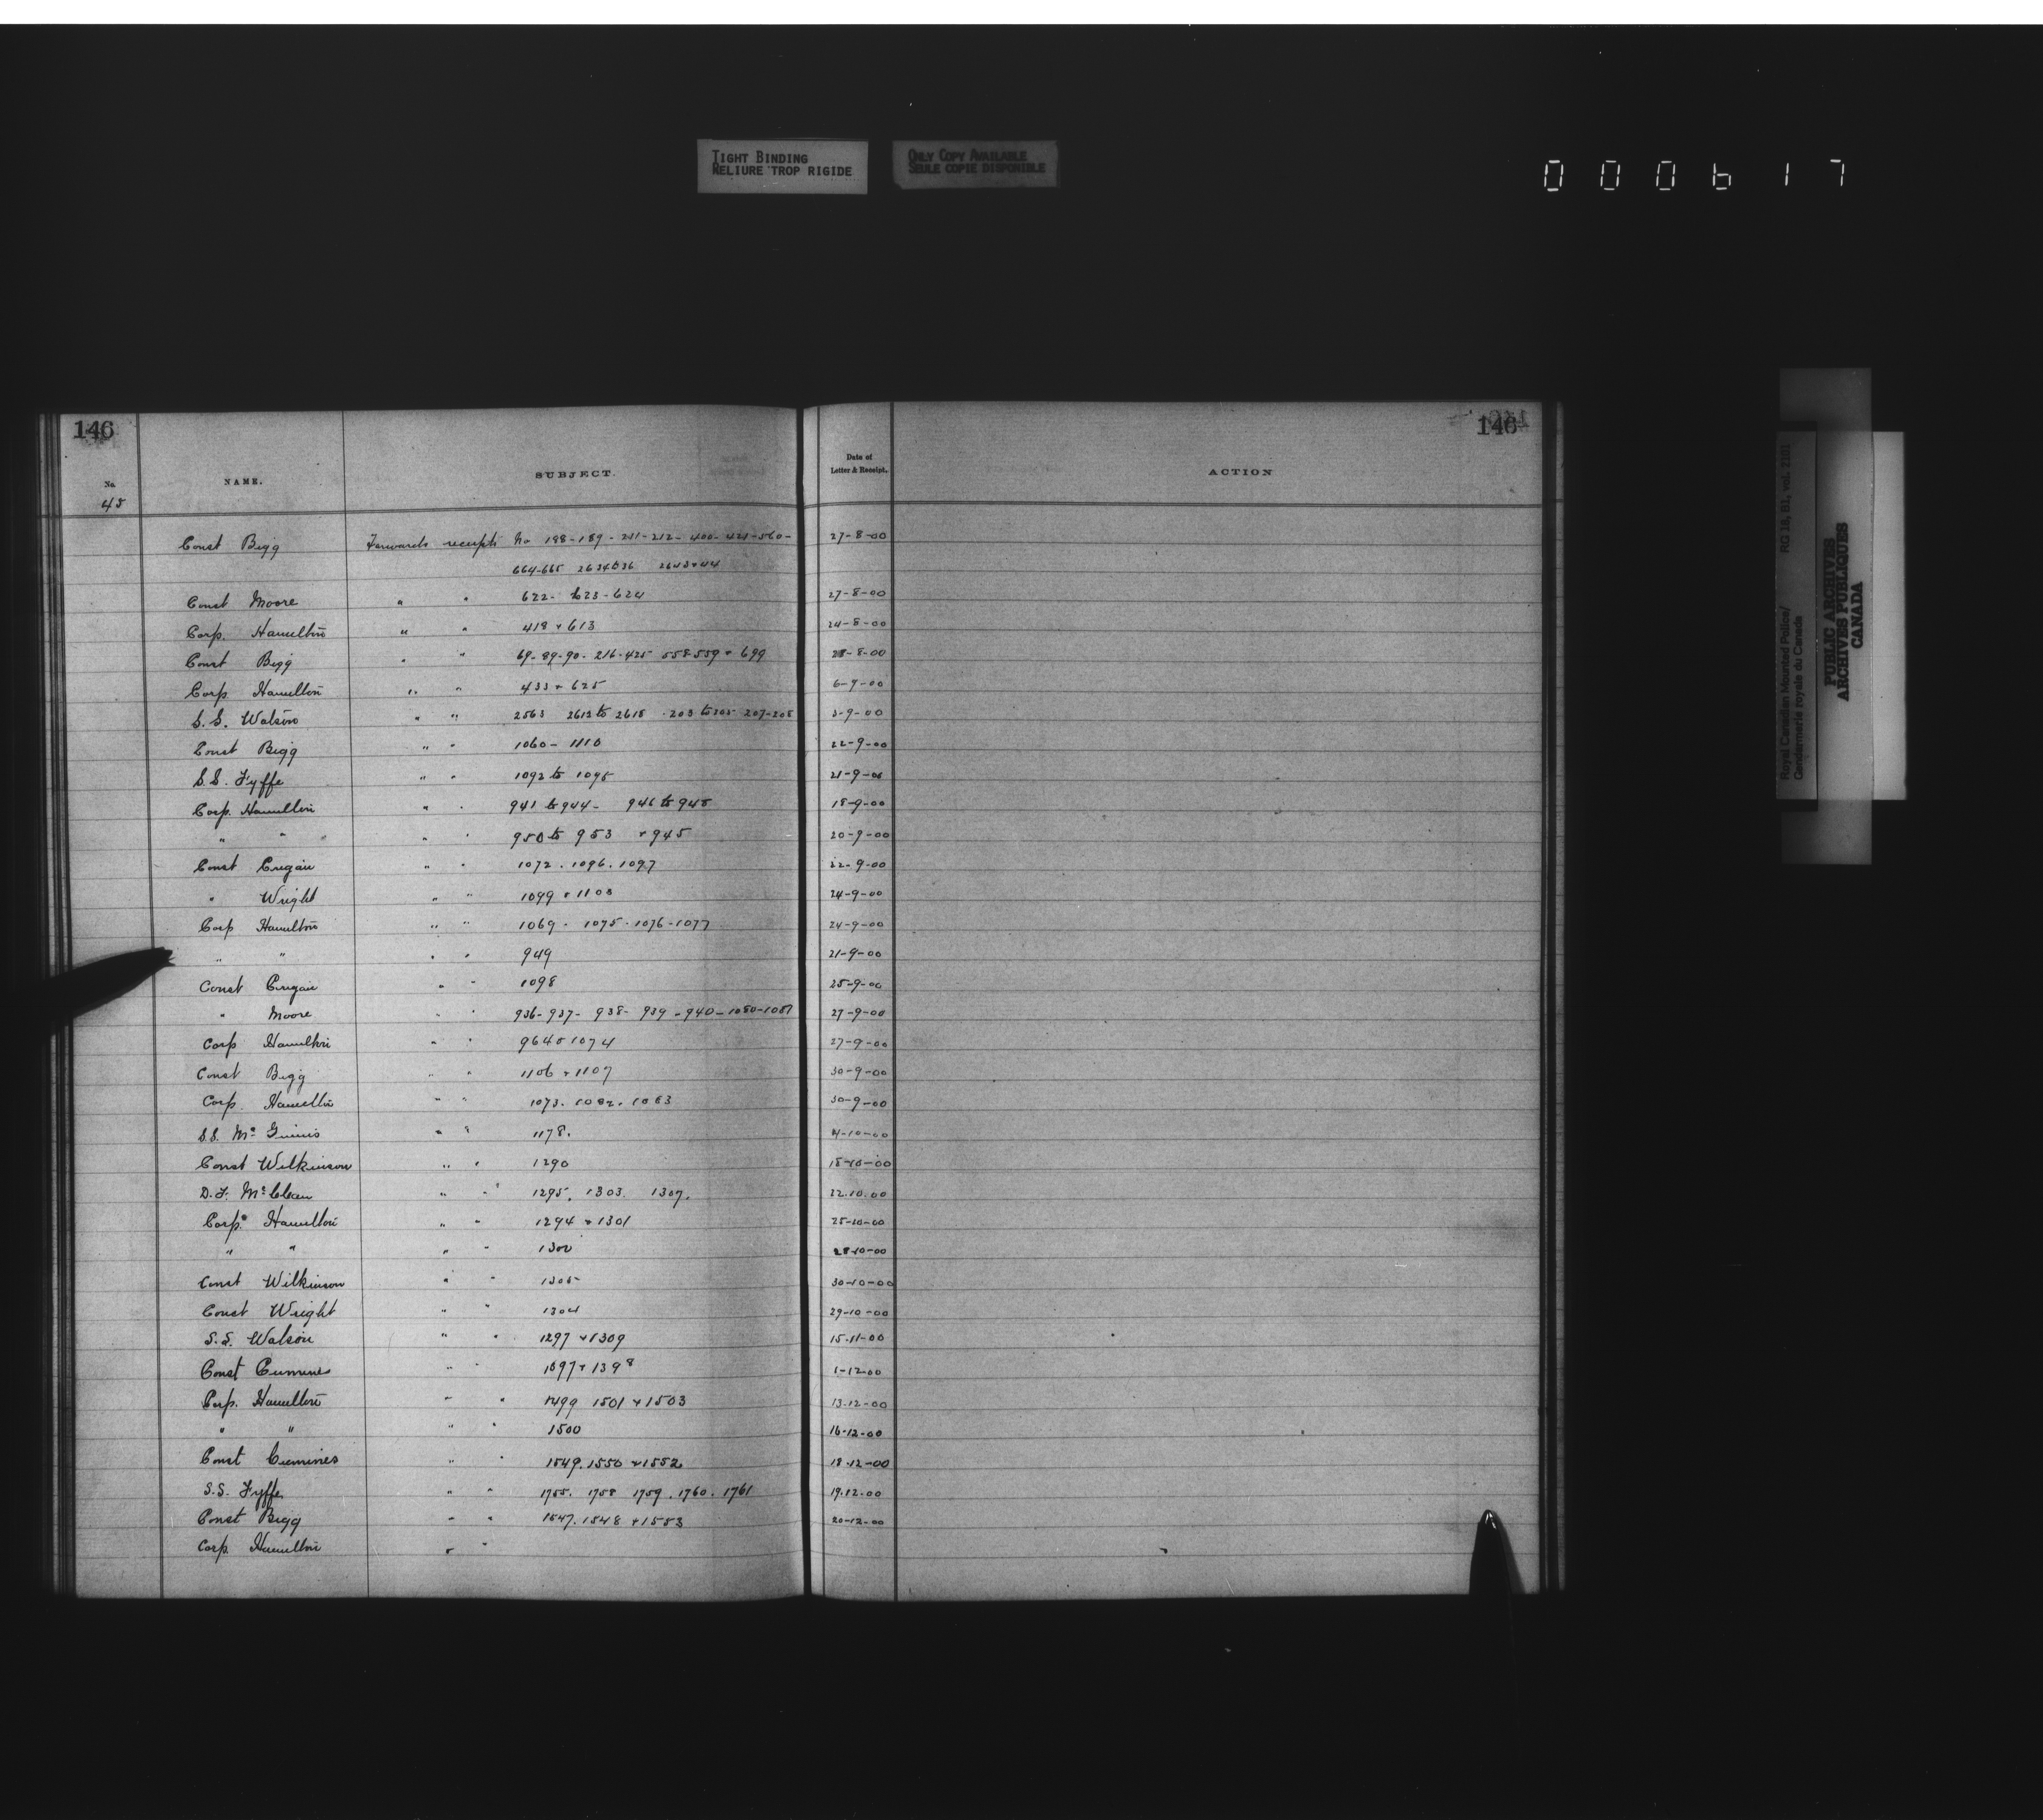 TIGHT BINDING
RELIURE TROP RIGIDE
ONLY COPY AVAILABLE
SEULE COPIE DISPONIBLE
000617
146 146
No. NAME. SUBJECT. Date of Letter & Receipt. ACTION
45
Const Bigg Forwards receipts No 188-189-211-212-400-424-560- 27-8-00
664-665 2634to36 2643+44
Const Moore " " 622-623-624 27-8-00
Corp. Hamilton " " 418 + 613 24-8-00
Const Bigg " " 69-89-90-216-425 558-559 + 699 28-8-00
Corp Hamilton " " 433 + 625 6-9-00
S.S. Watson " " 2563 2612 to 2618 203 to 205 207-208 3-9-00
Const Bigg " " 1060-1110 22-9-00
S.S. Fyffe " " 1092 to 1095 21-9-00
Corp. Hamilton " " 941 to 944- 946 to 948 18-9-00
" " " " 950 to 953 + 945 20-9-00
Const " " 1072. 1096. 1097 22-9-00
" Wright " " 1099 + 1103 24-9-00
Corp Hamilton " " 1069. 1075. 1076-1077 24-9-00
" " " " 949 21-9-00
Const " " 1098 25-9-00
" Moore " " 936-937-938-939-940-1080-1081 27-9-00
Corp Hamilton " " 964 1074 27-9-00
Const Bigg " " 1106 + 1107 30-9-00
Corp. Hamilton " " 1073. 1082. 1083 30-9-00
S.S. McGinnis " " 1178. 4-10-00
Const Wilkinson " " 1290 15-10-00
D.F. McClean " " 1295. 1303. 1307. 22.10.00
Corp. Hamilton " " 1294 + 1301 25-10-00
" " " " 1300 28-10-00
Const Wilkinson " " 1305 30-10-00
Const Wright " " 1304 29-10-00
S.S. Watson " " 1297 + 1309 15-11-00
Const Cumines " " 1097 + 1398 1-12-00
Corp. Hamilton " " 1499 1501 + 1503 13-12-00
" " " " 1500 16-12-00
Const Cumines " " 1549. 1550 + 1552 18-12-00
S.S. Fyffe " " 1755. 1758 1759. 1760. 1761 19.12.00
Const Bigg " " 1547. 1548 + 1553 20-12-00
Corp. Hamilton " "
Royal Canadian Mounted Police/
Gendarmerie royale du Canada
RG 18, B1, vol. 2101
PUBLIC ARCHIVES
ARCHIVES PUBLIQUES
CANADA